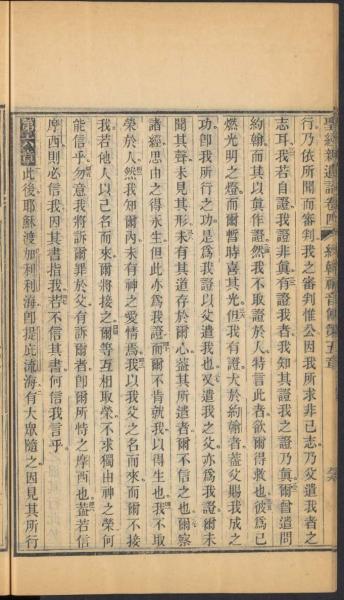 聖經新遺詔卷四 約翰福音傳第五章
行乃依所聞而審判我之審判惟公因我所求非己志乃父遣我者之
志耳我若自證我證非眞有證我者我知其證我之證乃眞爾曾遣問
約翰而其以眞作證然我不取證於人特言此者欲爾得救也彼爲已
燃光明之燈而爾暫時喜其光但我有證大於約翰者蓋父賜我成之
功卽我所行之功是爲我證以父遣我也又遣我之父亦爲我證爾未
聞其聲未見其形未有其道存於爾心蓋其所遣者爾不信之也爾察
諸經思由之得永生但此亦爲我證而爾不肯就我以得生也我不取
榮於人然我知爾內未有神之愛情焉我以我父之名而來而爾不接
我若他人以己名而來爾將接之爾等互相取榮不求獨由神之榮何
能信乎勿意我將訴爾罪於父有訴爾者卽爾所恃之摩西也蓋若信
摩西則必信我因其書指我若不信其書何信我言乎
第六章此後耶穌渡加利利海卽提庇流海有大眾隨之因見其所行